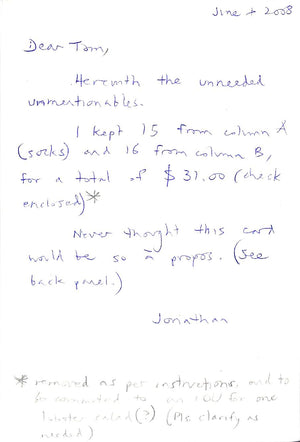 June + 2008
Dear Tom,
Herewith the unneeded
unmentionables.
I kept 15 from column A
(socks) and 16 from column B,
for a total of $31.00 (check
enclosed)*
Never thought this card
would be so à propos. (See
back panel.)
Jonathan
* removed as per instructions, and to
be converted to an IOU for one
lobster salad (?) (Pls clarify as
needed)